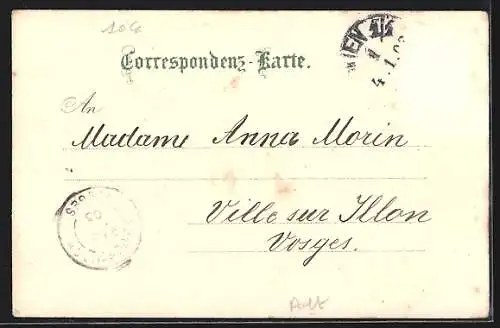 106
Correspondenz-Karte.
WIEN 1/1
4.1.03
An
Madame Anna Morin
Ville sur Illon
Vosges.